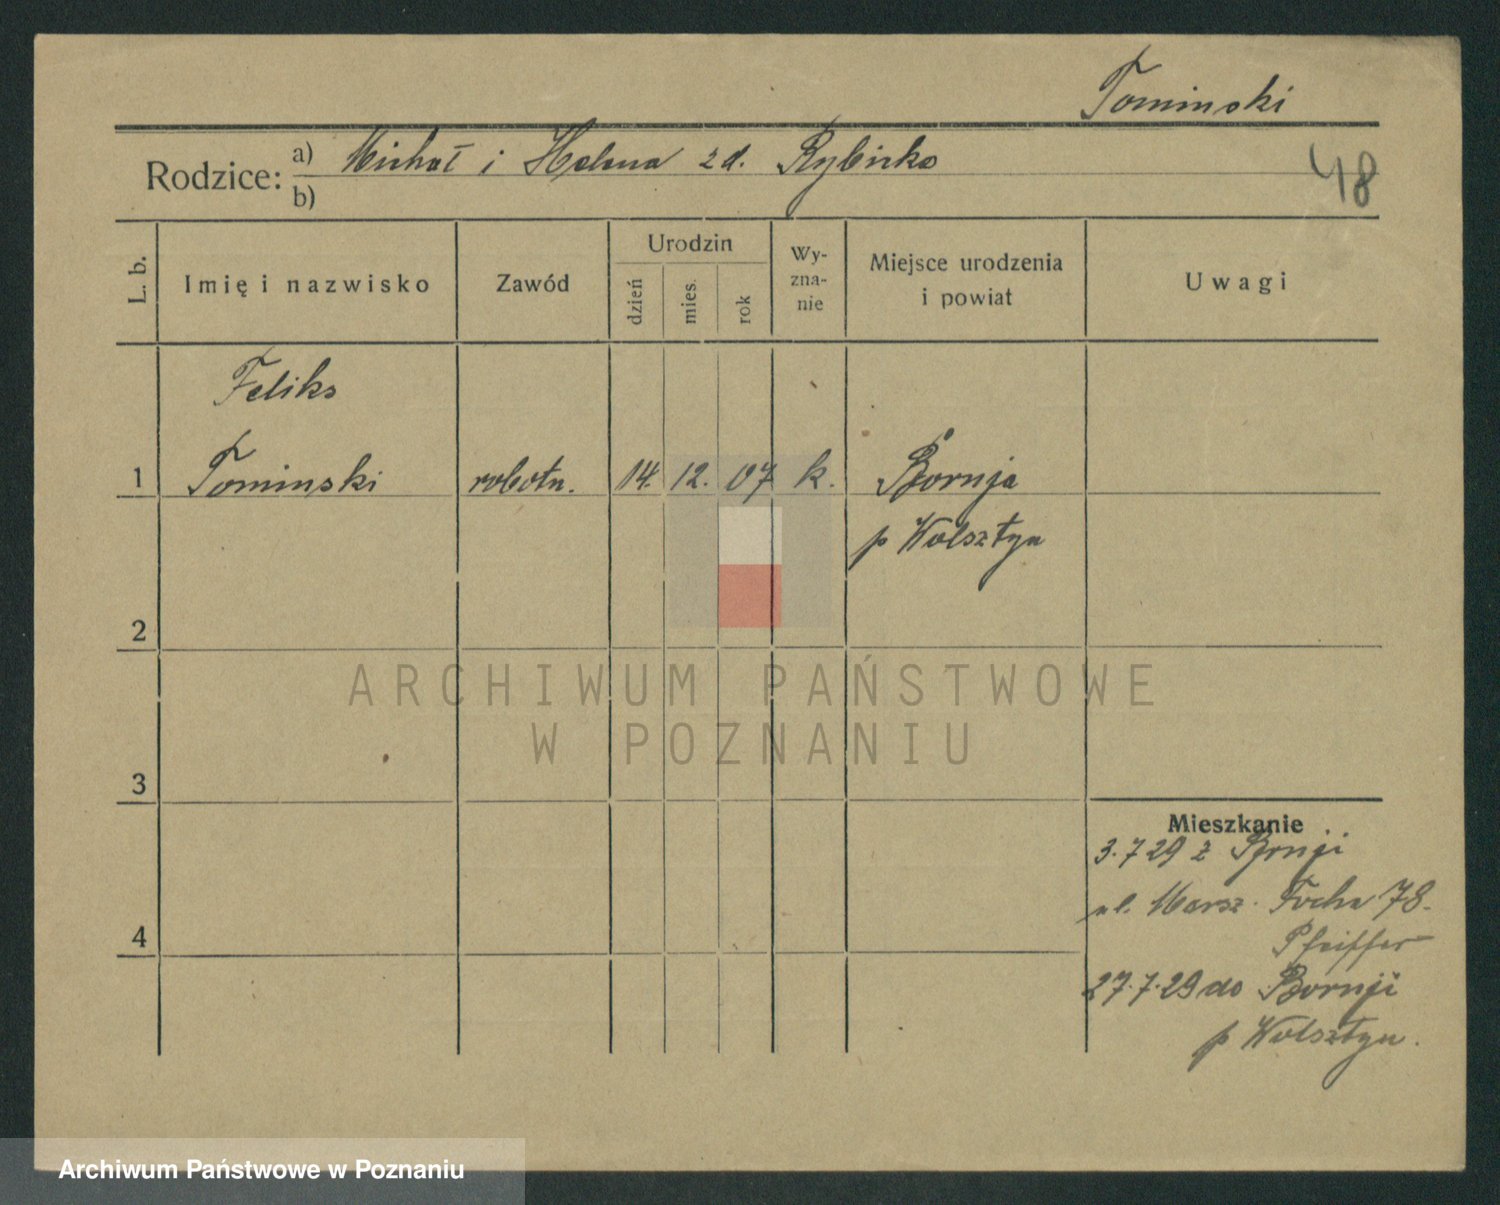 Tominski
Rodzice: a) Michał i Helena z d. Rybicka
b)
48
L. b. Imię i nazwisko Zawód Urodzin dzień mies. rok Wy-zna-nie Miejsce urodzenia i powiat Uwagi
Feliks
1 Tominski robotn. 14. 12. 07 k. Bornja
p Wolsztyn
2
ARCHIWUM PAŃSTWOWE
W POZNANIU
3
Mieszkanie
3.7 29 z Bornji
ul. Marsz. Focha 78.
4
Pfeiffer
27.7.29 do Bornji
p Wolsztyn.
Archiwum Państwowe w Poznaniu